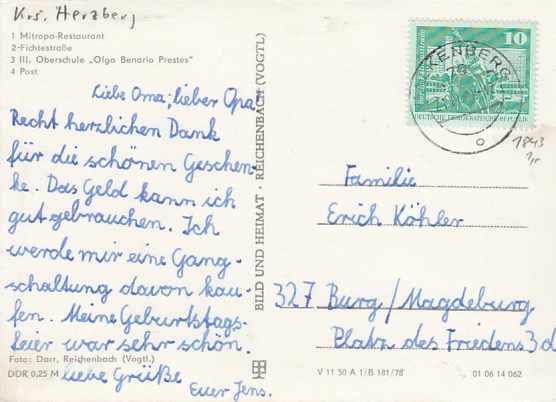 Krs. Herzberg
1 Mitropa-Restaurant
2-Fichtestraße
3 III. Oberschule „Olga Benario Prestes"
4 Post
Liebe Oma, lieber Opa
Recht herzlichen Dank
für die schönen Geschen-
ke. Das Geld kann ich
gut gebrauchen. Ich
werde mir eine Gang-
schaltung davon kau-
fen. Meine Geburtstags-
feier war sehr schön.
Foto: Darr, Reichenbach (Vogtl.)
DDR 0,25 M
liebe Grüße
Euer Jens.
BILD UND HEIMAT · REICHENBACH (VOGTL)
10
DEUTSCHE DEMOKRATISCHE REPUBLIK
KENBERG
1843
Familie
Erich Köhler
327 Burg/Magdeburg
Platz des Friedens 3d
V 11 50 A 1/B 181/78
01 06 14 062